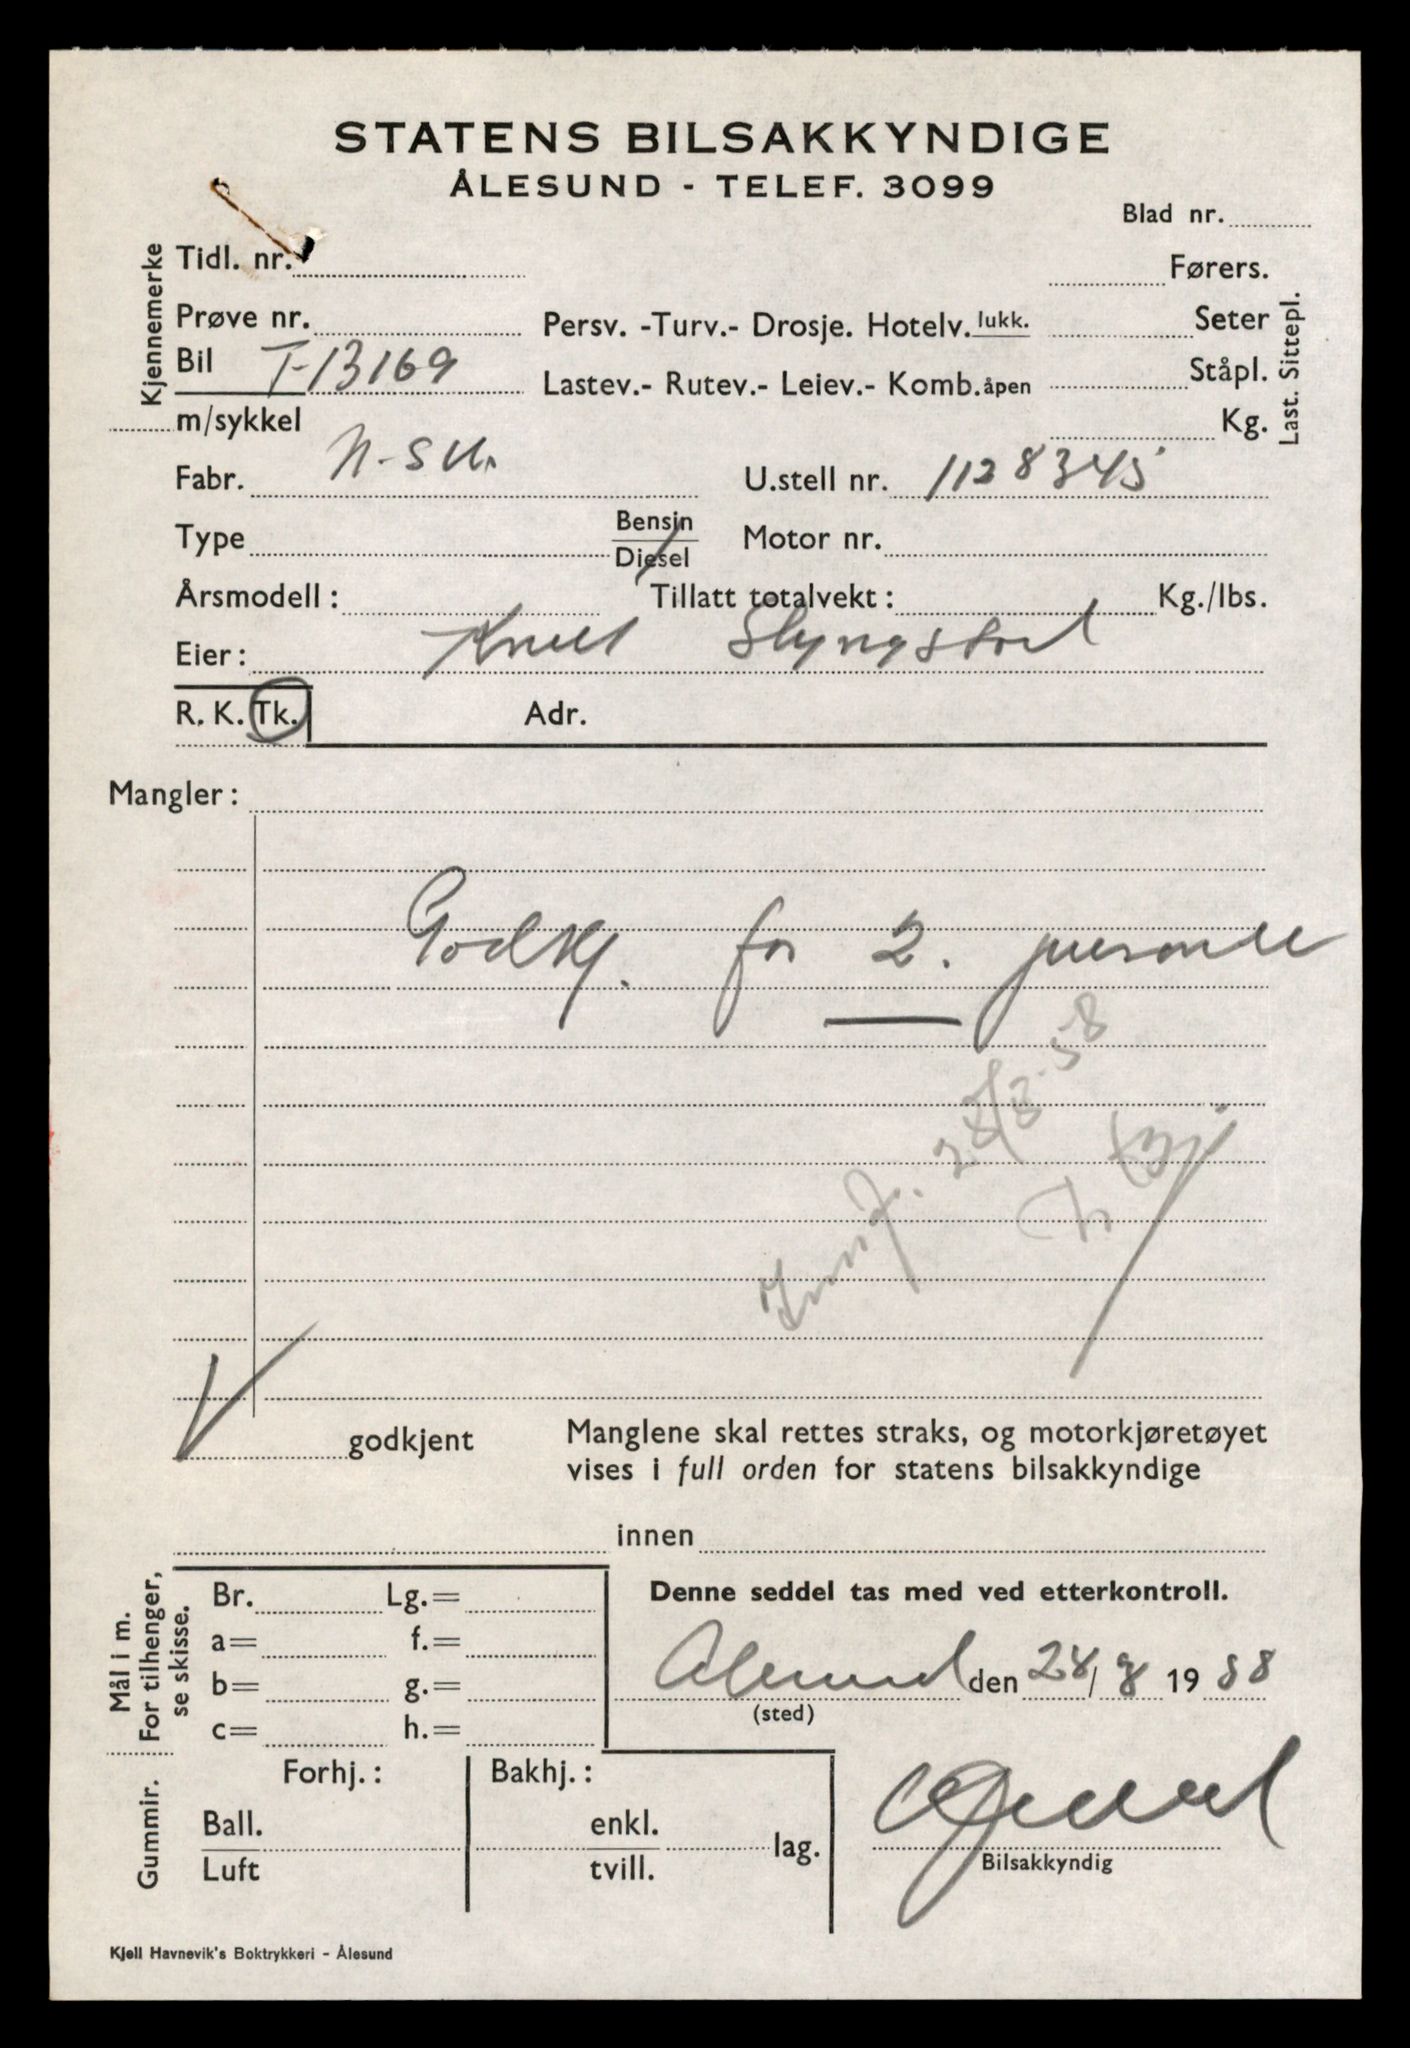 STATENS BILSAKKYNDIGE
ÅLESUND - TELEF. 3099
Blad nr.
Kjennemerke
Tidl. nr.
Førers.
Prøve nr.
Persv. -Turv.- Drosje. Hotelv. lukk.
Seter
Bil T-13169
Lastev.- Rutev.- Leiev.- Komb. åpen
Ståpl.
m/sykkel
Kg.
Last. Sittepl.
Fabr. N-SU.
U.stell nr. 1128345
Type
Bensin
Diesel
Motor nr.
Årsmodell :
Tillatt totalvekt :
Kg./lbs.
Eier : Knut Slyngstad
R. K. Tk.
Adr.
Mangler :
Godkj. for 2. personer
28/8.58
godkjent
Manglene skal rettes straks, og motorkjøretøyet
vises i full orden for statens bilsakkyndige
innen
Mål i m.
For tilhenger,
se skisse.
Br. Lg.=
a= f.=
b= g.=
c= h.=
Denne seddel tas med ved etterkontroll.
Ålesund den 28/8 1958
(sted)
Gummir.
Forhj. :
Bakhj. :
Ball.
Luft
enkl.
tvill.
lag.
Bilsakkyndig
Kjell Havnevik's Boktrykkeri - Ålesund